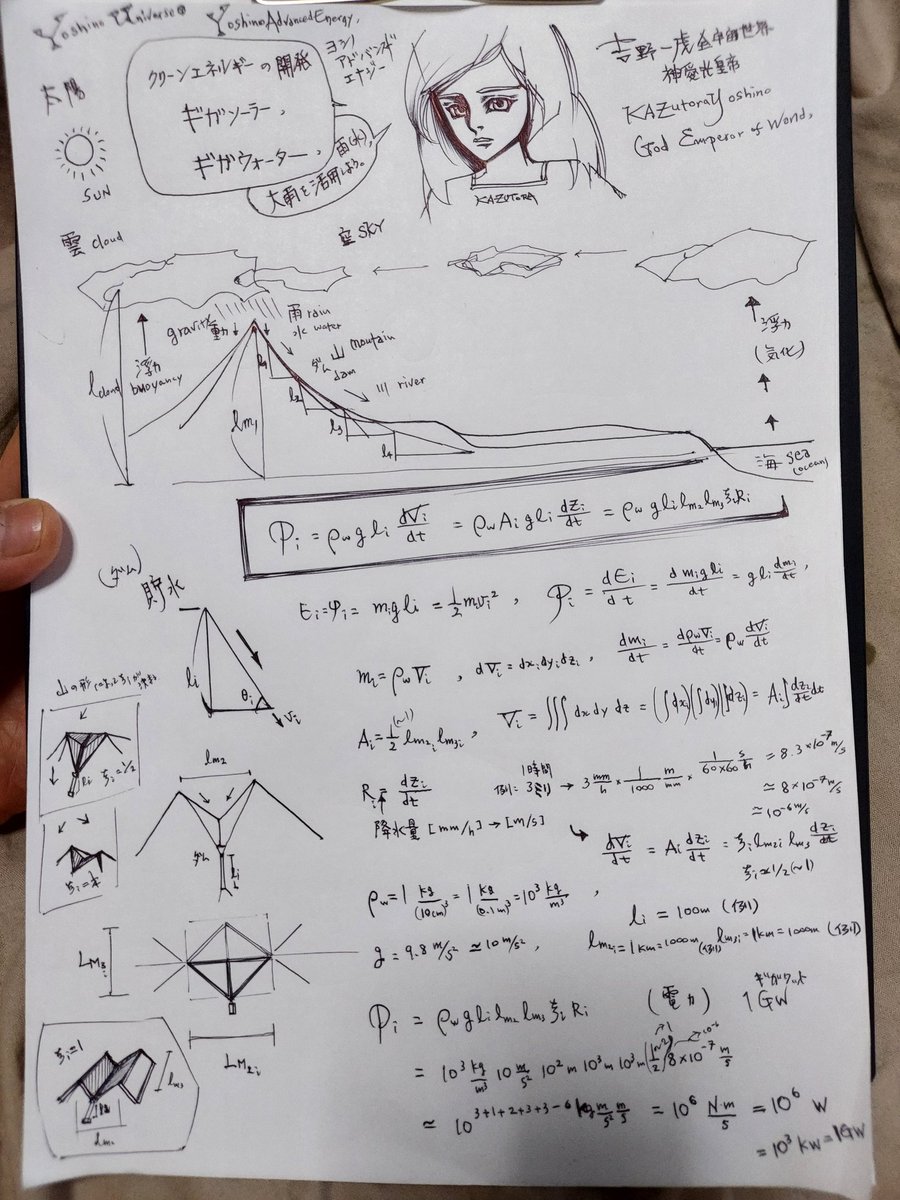 Yoshino Universe
Yoshino Advanced Energy,
ヨシノ
アドバンスド
エナジー
クリーンエネルギーの開発
ギガソーラー、
ギガウォーター、
雨(水)、
大雨を活用しよう。
吉野一虎全中宙世界
神愛光皇帝
KAZutora Yoshino
God Emperor of World,
KAZUTORA
太陽
SUN
雲 cloud
空 SKY
gravity
重力
雨 rain
水 water
山 mountain
ダム
dam
川 river
浮力
buoyancy
lcloud
lm₁
l₁
l₂
l₃
l₄
浮力
(気化)
海 sea
(ocean)
Pi = ρw g li dVi/dt = ρw Ai g li dzi/dt = ρw g li lm₂ lm₃ ξi Ri
(ダム)
貯水
Ei = φi = mi g li = 1/2 mi vi² , Pi = dEi/dt = d mi g li/dt = g li dmi/dt ,
li
θi
vi
mi = ρw Vi , dVi = dxi dyi dzi , dmi/dt = dρw Vi/dt = ρw dVi/dt
Ai = 1/2 (~1) lm₂i lm₃i , Vi = ∫∫∫ dx dy dz = (∫dxi)(∫dyi)(∫dzi) = Ai ∫ dzi/dt dt
ξi = 1/2
lm₂
ダム
li
Ri = dzi/dt
1時間
例) = 3ミリ → 3 mm/h × 1/1000 m/mm × 1/60×60 = 8.3 × 10⁻⁷ m/s
≃ 8 × 10⁻⁷ m/s
≃ 10⁻⁶ m/s
降水量 [mm/h] → [m/s]
dVi/dt = Ai dzi/dt = ξi lm₂i lm₃ dzi/dt
ξi ≈ 1/2 (~1)
ρw = 1 kg/(10cm)³ = 1 kg/(0.1m)³ = 10³ kg/m³ ,
li = 100m (例)
g = 9.8 m/s² ≃ 10 m/s² ,
lm₂i = 1km = 1000m (例) lm₃i = 1km = 1000m (例)
LM₃i
LM₂i
Pi = ρw g li lm₂ lm₃ ξi Ri (電力) 1GW
ギガワット
= 10³ kg/m³ 10 m/s² 10² m 10³ m 10³ m (1/2) 8×10⁻⁷ m/s
≃ 10^(3+1+2+3+3-6) kg m/s² m/s = 10⁶ N·m/s = 10⁶ W
= 10³ kW = 1GW
ξi = 1
lm₃
lm₂